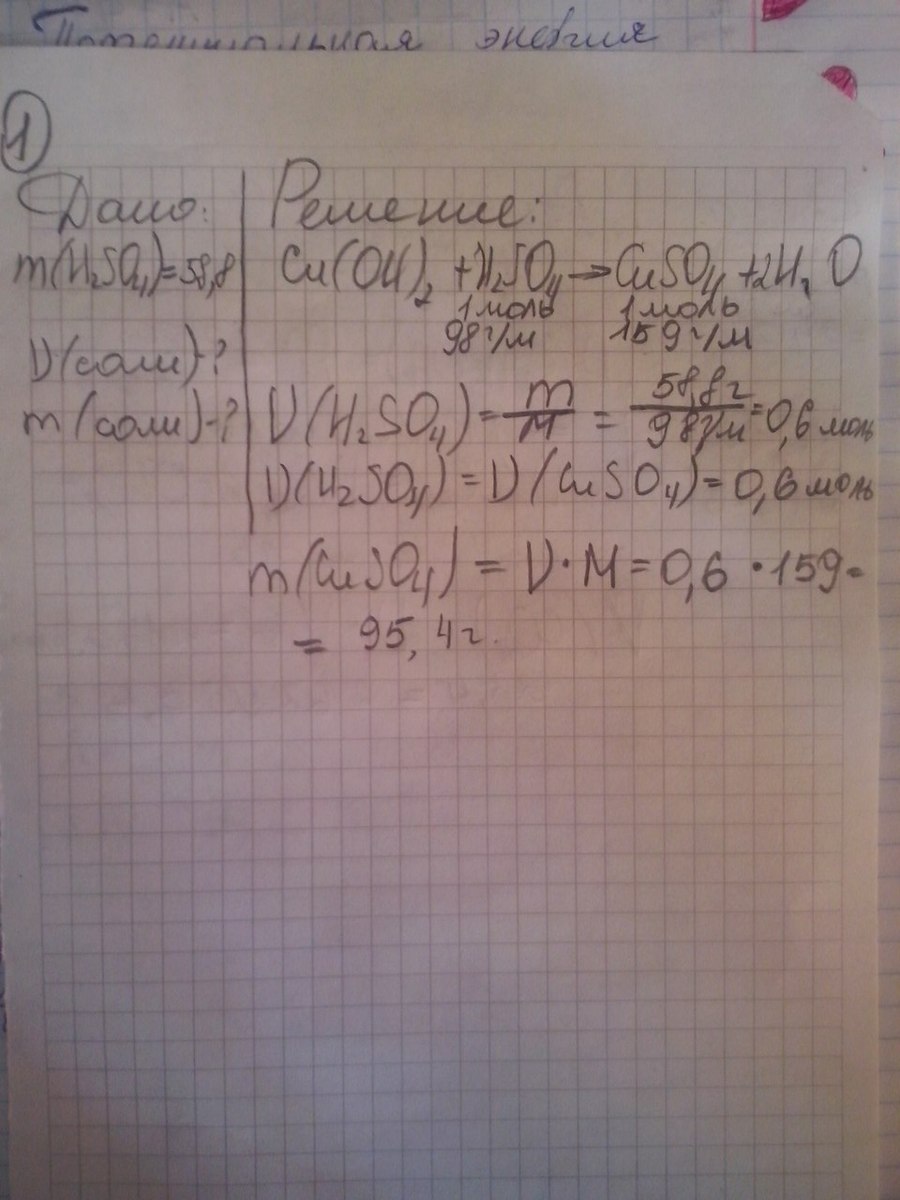 Потенциальная энергия
1
Дано:
m(H₂SO₄)=58,8
ν(соли)-?
m(соли)-?
Решение:
Cu(OH)₂ + H₂SO₄ → CuSO₄ + 2H₂O
1 моль 1 моль
98 г/м 159 г/м
ν(H₂SO₄) = m/M = 58,8г/98г/м = 0,6 моль
ν(H₂SO₄) = ν(CuSO₄) = 0,6 моль
m(CuSO₄) = ν·M = 0,6 · 159 =
= 95,4г.